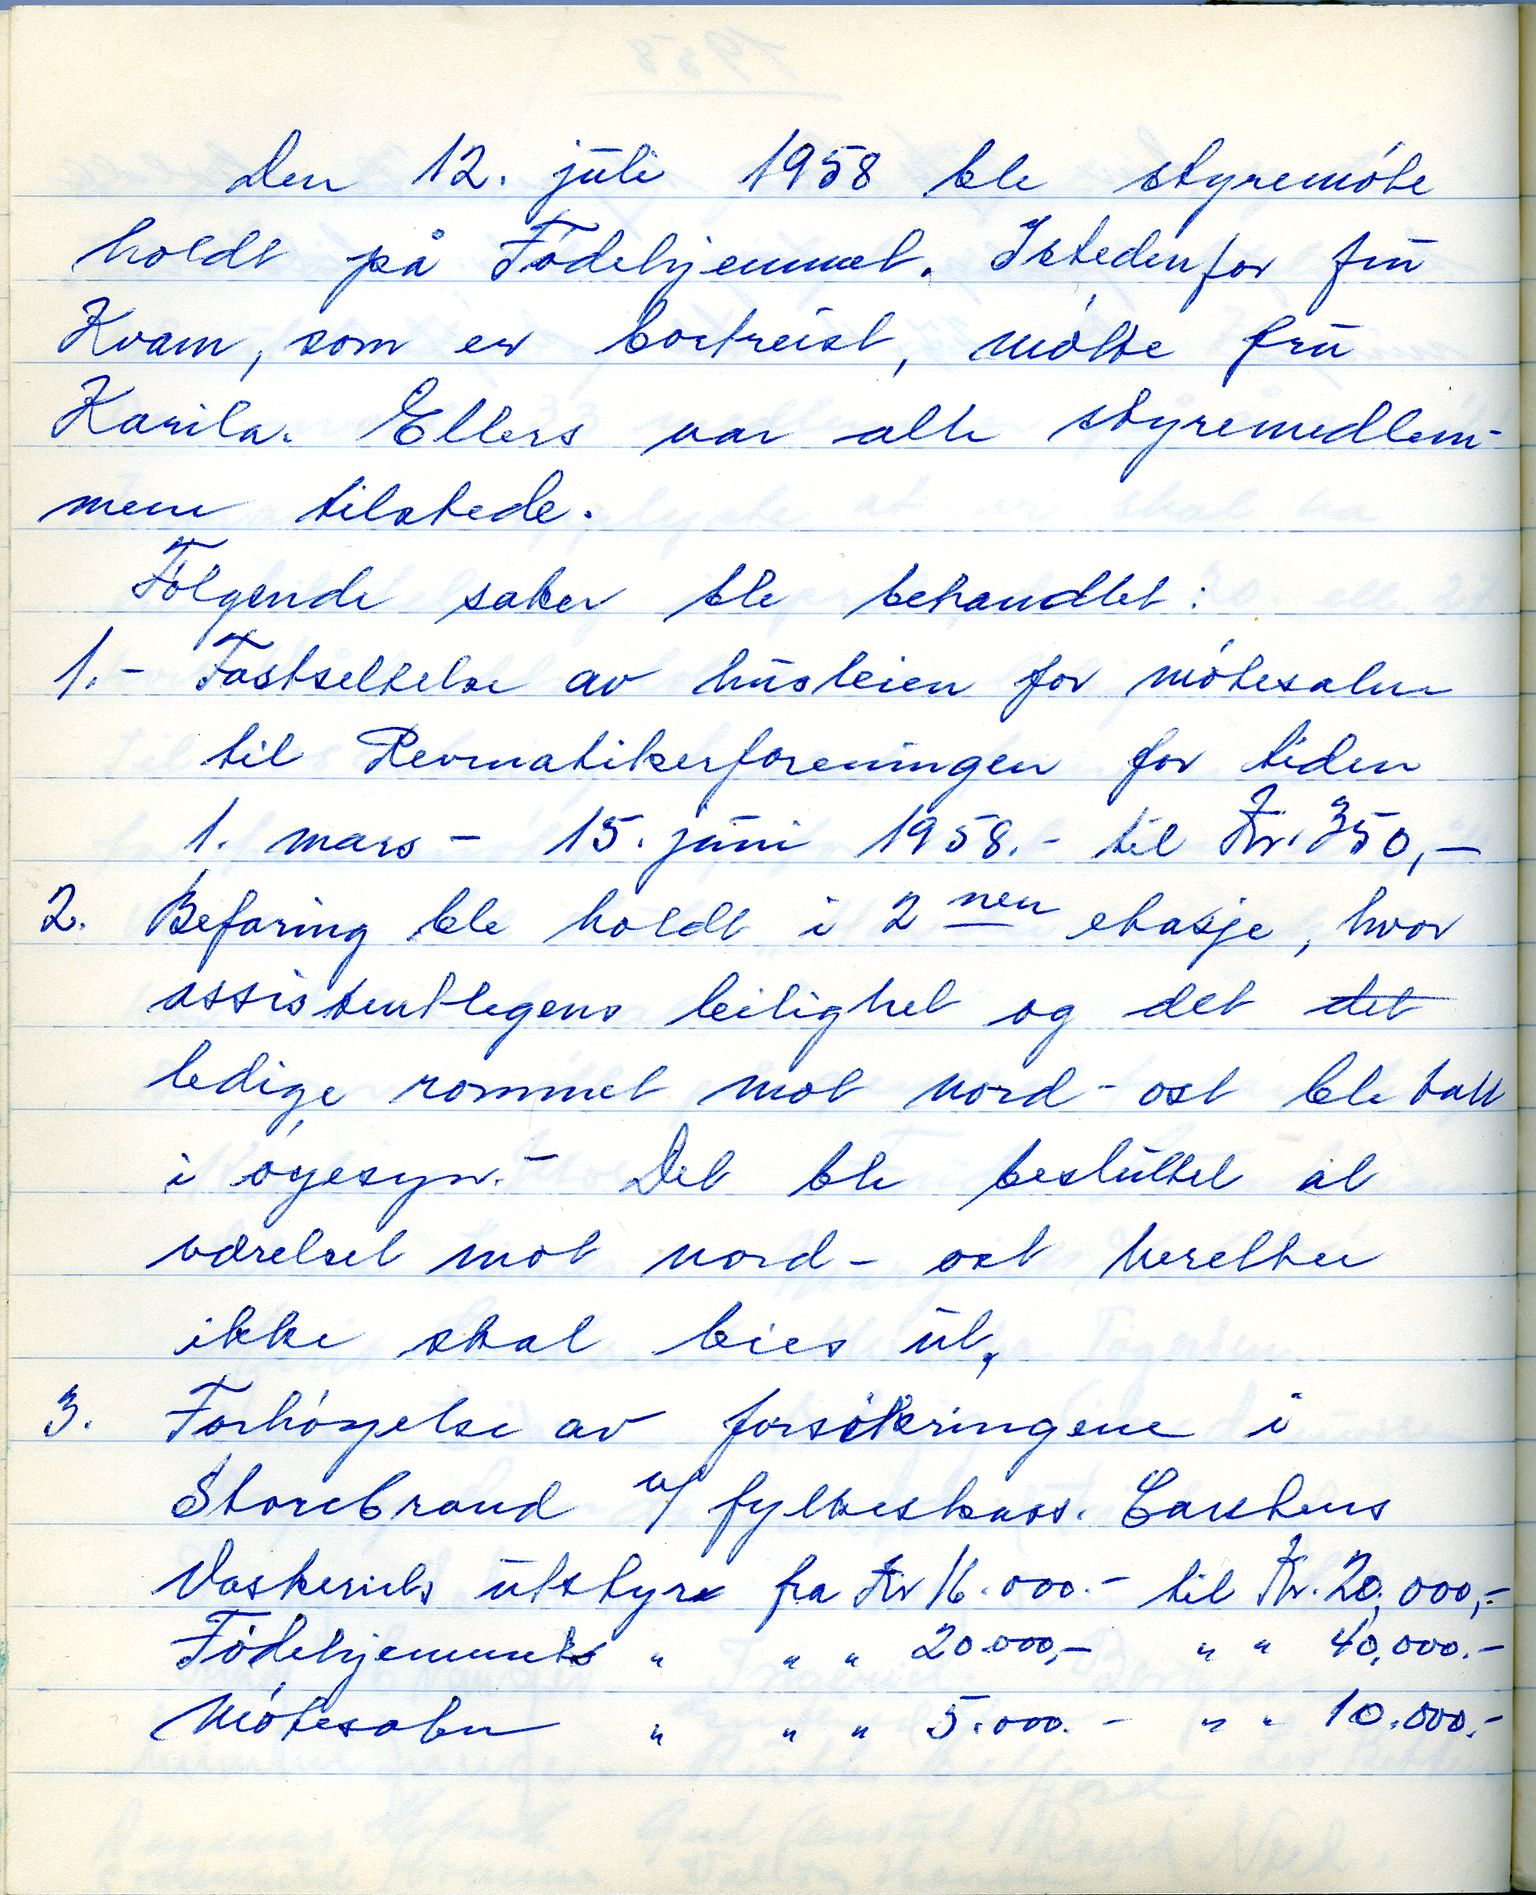 Den 12. juli 1958 ble styremöte
holdt på Födehjemmet. Istedenfor frü
Kvam, som er bortreist, mötte frü
Karila. Ellers var alle styremedlem-
mene tilstede.
Fölgende saker ble behandlet:
1.- Fastsettelse av husleien for mötesalen
til Revmatikerforeningen for tiden
1. mars - 15. juni 1958.- til Kr. 350,-
2. Befaring ble holdt i 2 nen etasje, hvor
assistentlegens leilighet og det det
ledige rommet mot nord-ost ble tatt
i öyesyn.- Det ble besluttet at
værelset mot nord-ost heretter
ikke skal leies ut.
3. Forhöyelse av forsikringene i
Storebrand v/ fylkeskass. Carstens
Vaskeriets utstyr fra Kr 16.000.- til Kr. 20.000,-
Födehjemmets " " " 20.000,- " " 40.000.-
Mötesalen " " " 5.000.- " " 10.000.-